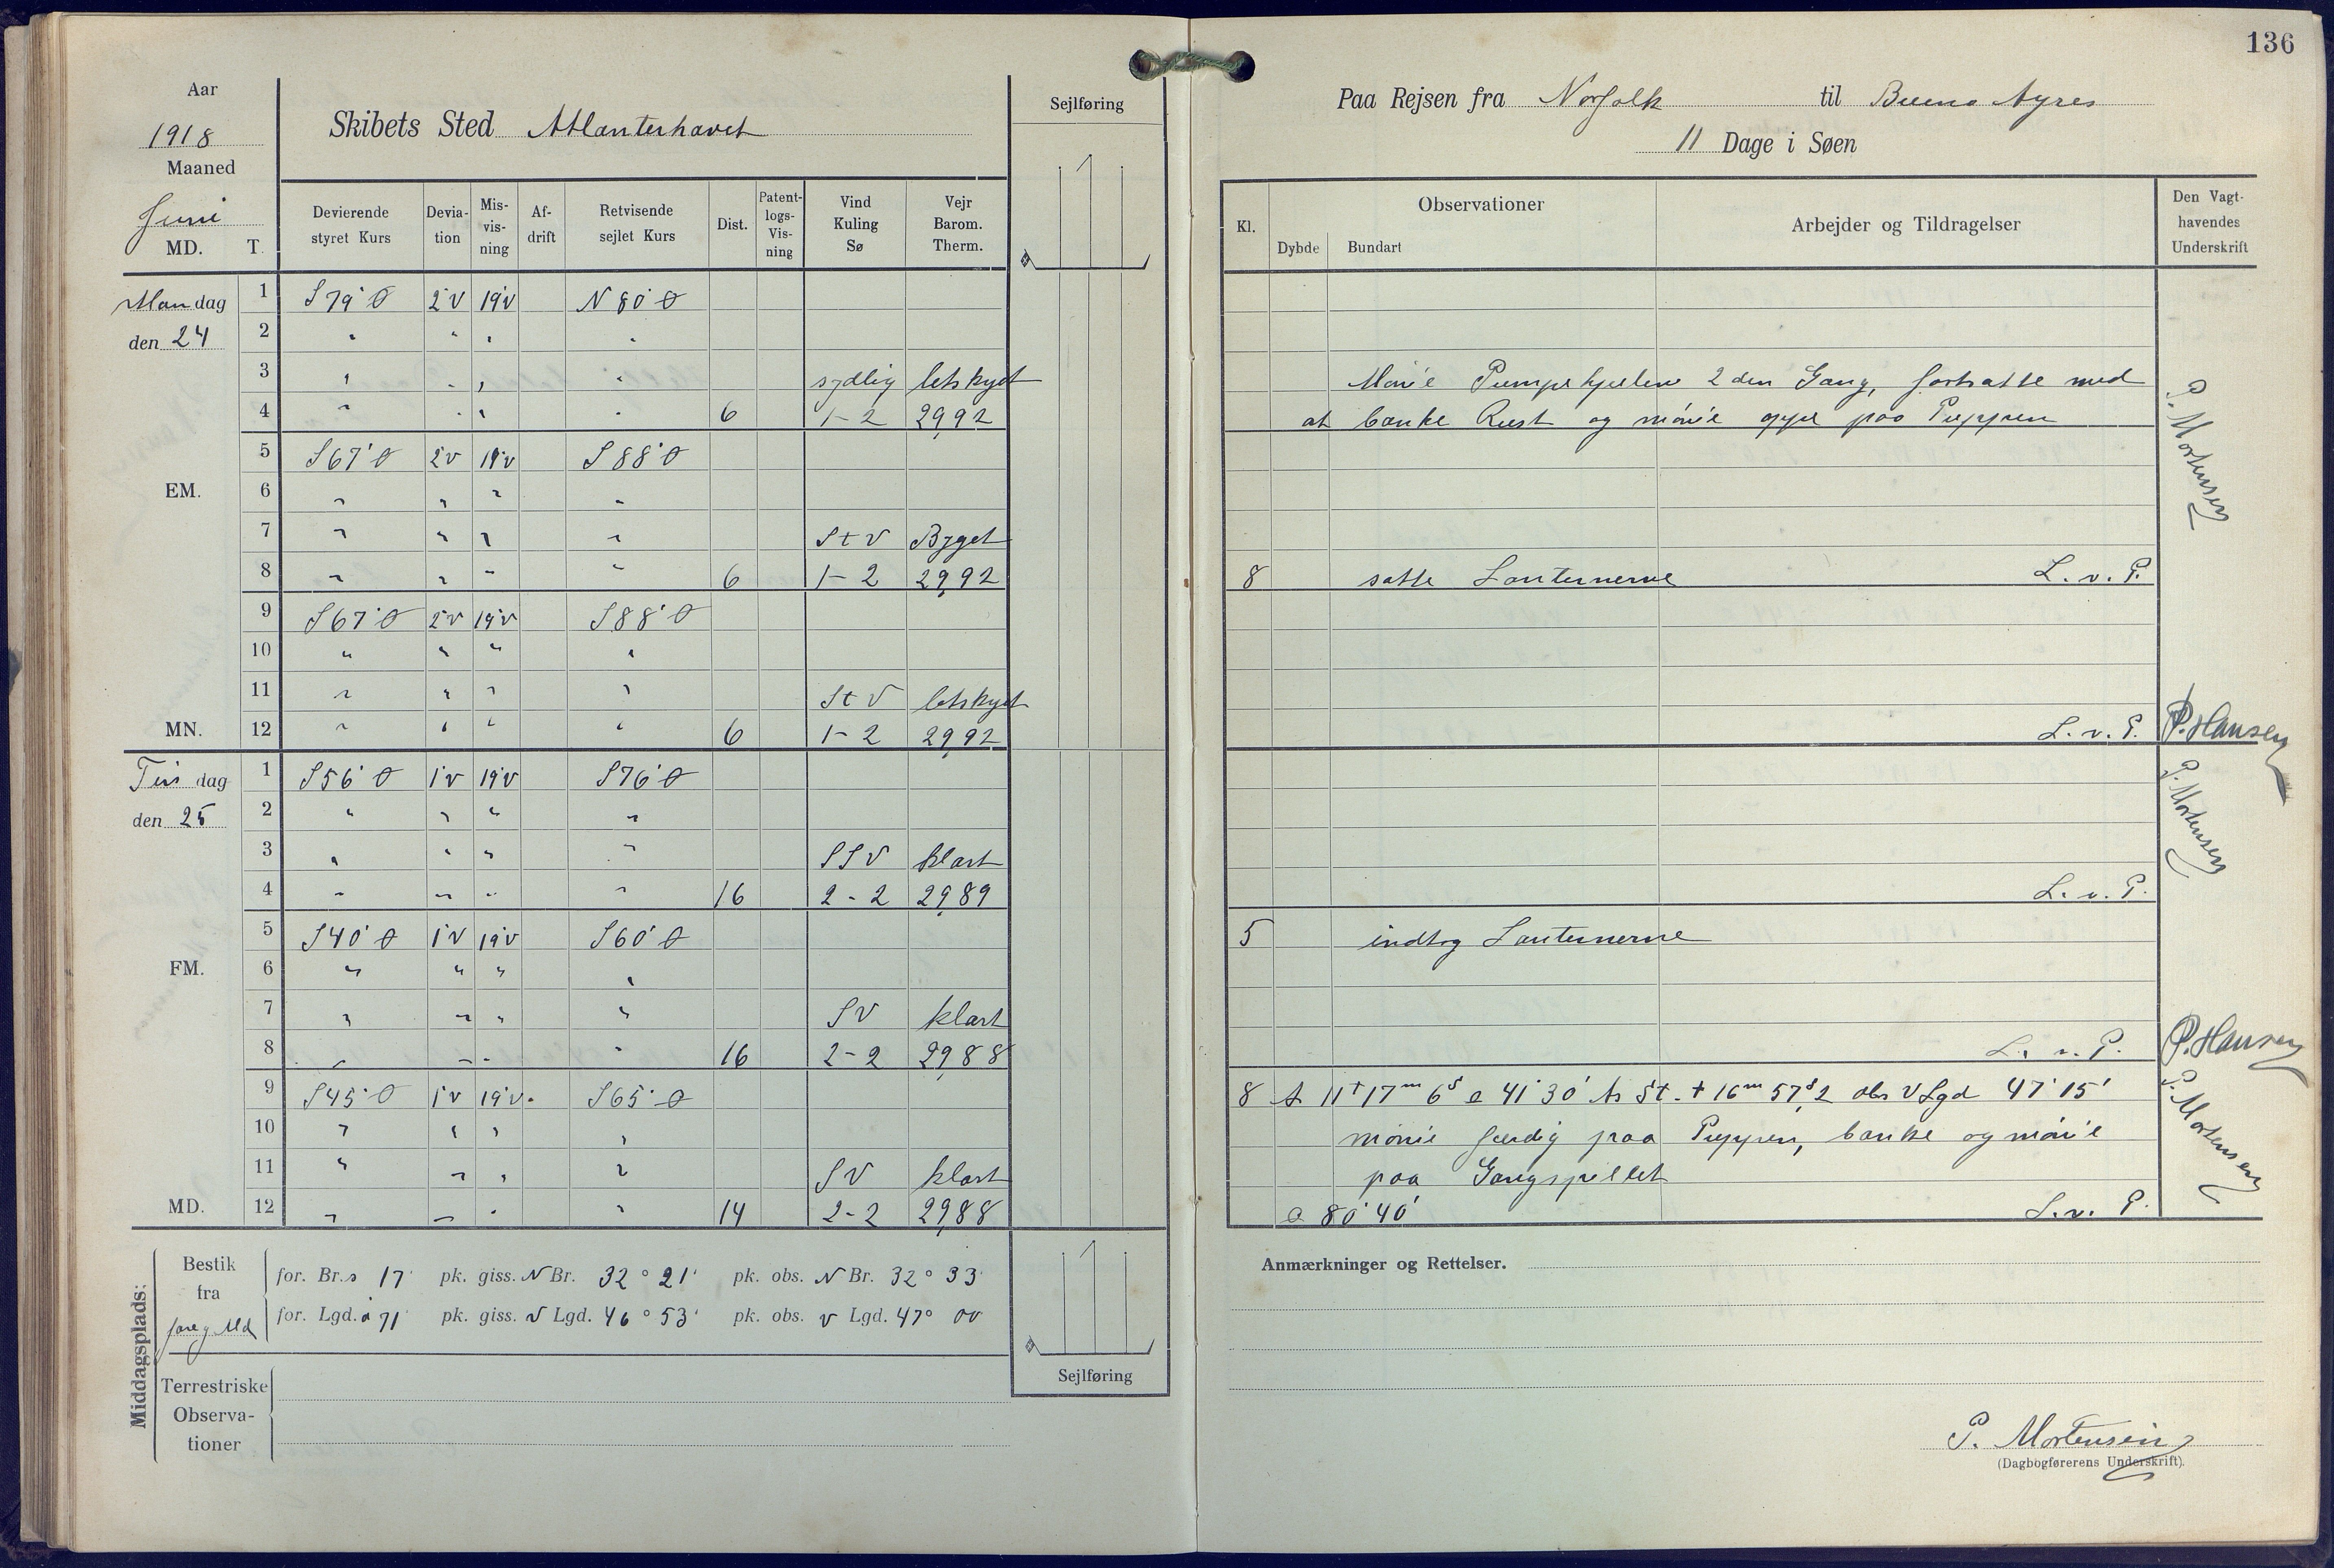 136
Aar
1918
Maaned
Juni
MD. T.
Skibets Sted Atlanterhavet
Sejlføring
Paa Rejsen fra Norfolk til Bueno Ayres
11 Dage i Søen
Devierende styret Kurs
Devia-tion
Mis-vis-ning
Af-drift
Retvisende sejlet Kurs
Dist.
Patent-logs-Vis-ning
Vind Kuling Sø
Vejr Barom. Therm.
Kl.
Observationer
Dybde Bundart
Arbejder og Tildragelser
Den Vagt-havendes Underskrift
Mandag 1 S79°O 2°V 19°V N80°O
den 24 2 " " " "
3 " " " " sydlig letskyet
Mønie Pumpekjælene 2den Gang, fortsatte med
4 " " " " 6 1-2 29,92
at banke Rust og mønie oppe paa Puppen
P. Mortensen
5 S67°O 2°V 19°V S88°O
EM. 6 " " " "
7 " " " " StV Byget
8 " " " " 6 1-2 29,92
8 satte Lanternerne L. v. P.
9 S67°O 2°V 19°V S88°O
10 " " " "
11 " " " " StV letskyet
MN. 12 " " " " 6 1-2 29,92
L. v. P. P. Hansen
Tirsdag 1 S56°O 1°V 19°V S76°O
den 25 2 " " " "
3 " " " " SSV klart
4 " " " " 16 2-2 29,89
L. v. P. P. Mortensen
5 S40°O 1°V 19°V S60°O
5 indtog Lanternerne
FM. 6 " " " "
7 " " " " SV klart
8 " " " " 16 2-2 29,88
L. v. P. P. Hansen
9 S45°O 1°V 19°V. S65°O
8 11 17m 6s 41°30' St. + 16m 57s,2 obs V Lgd 47°15'
10 " " " "
mønie færdig paa Puppen, banke og mønie
11 " " " " SV klart
paa Gangspillet
MD. 12 " " " " 14 2-2 29,88
80°40' L. v. P.
P. Mortensen
Middagsplads:
Bestik fra foreg Md
for. Br. s 17' pk. giss. N Br. 32° 21' pk. obs. N Br. 32° 33'
for. Lgd. ø 71' pk. giss. V Lgd. 46° 53' pk. obs. V Lgd. 47° 00
Sejlføring
Terrestriske Observa-tioner
Anmærkninger og Rettelser.
P. Mortensen
(Dagbogførerens Underskrift).